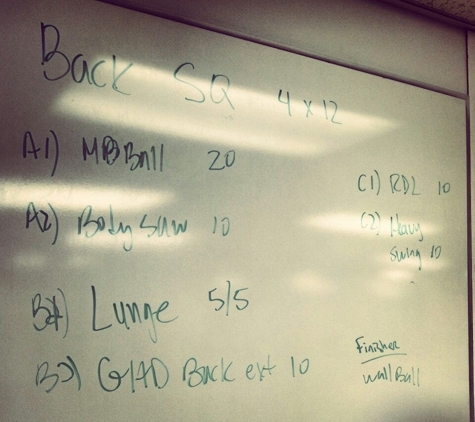 Back SQ 4 x 12
A1) MB Ball 20
A2) Body Saw 10
B1) Lunge 5/5
B2) GHD Back ext 10
C1) RDL 10
C2) Heavy
swing 10
Finisher
wall Ball